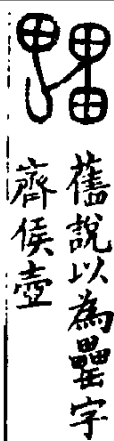 舊說以為罍字
齊侯壺